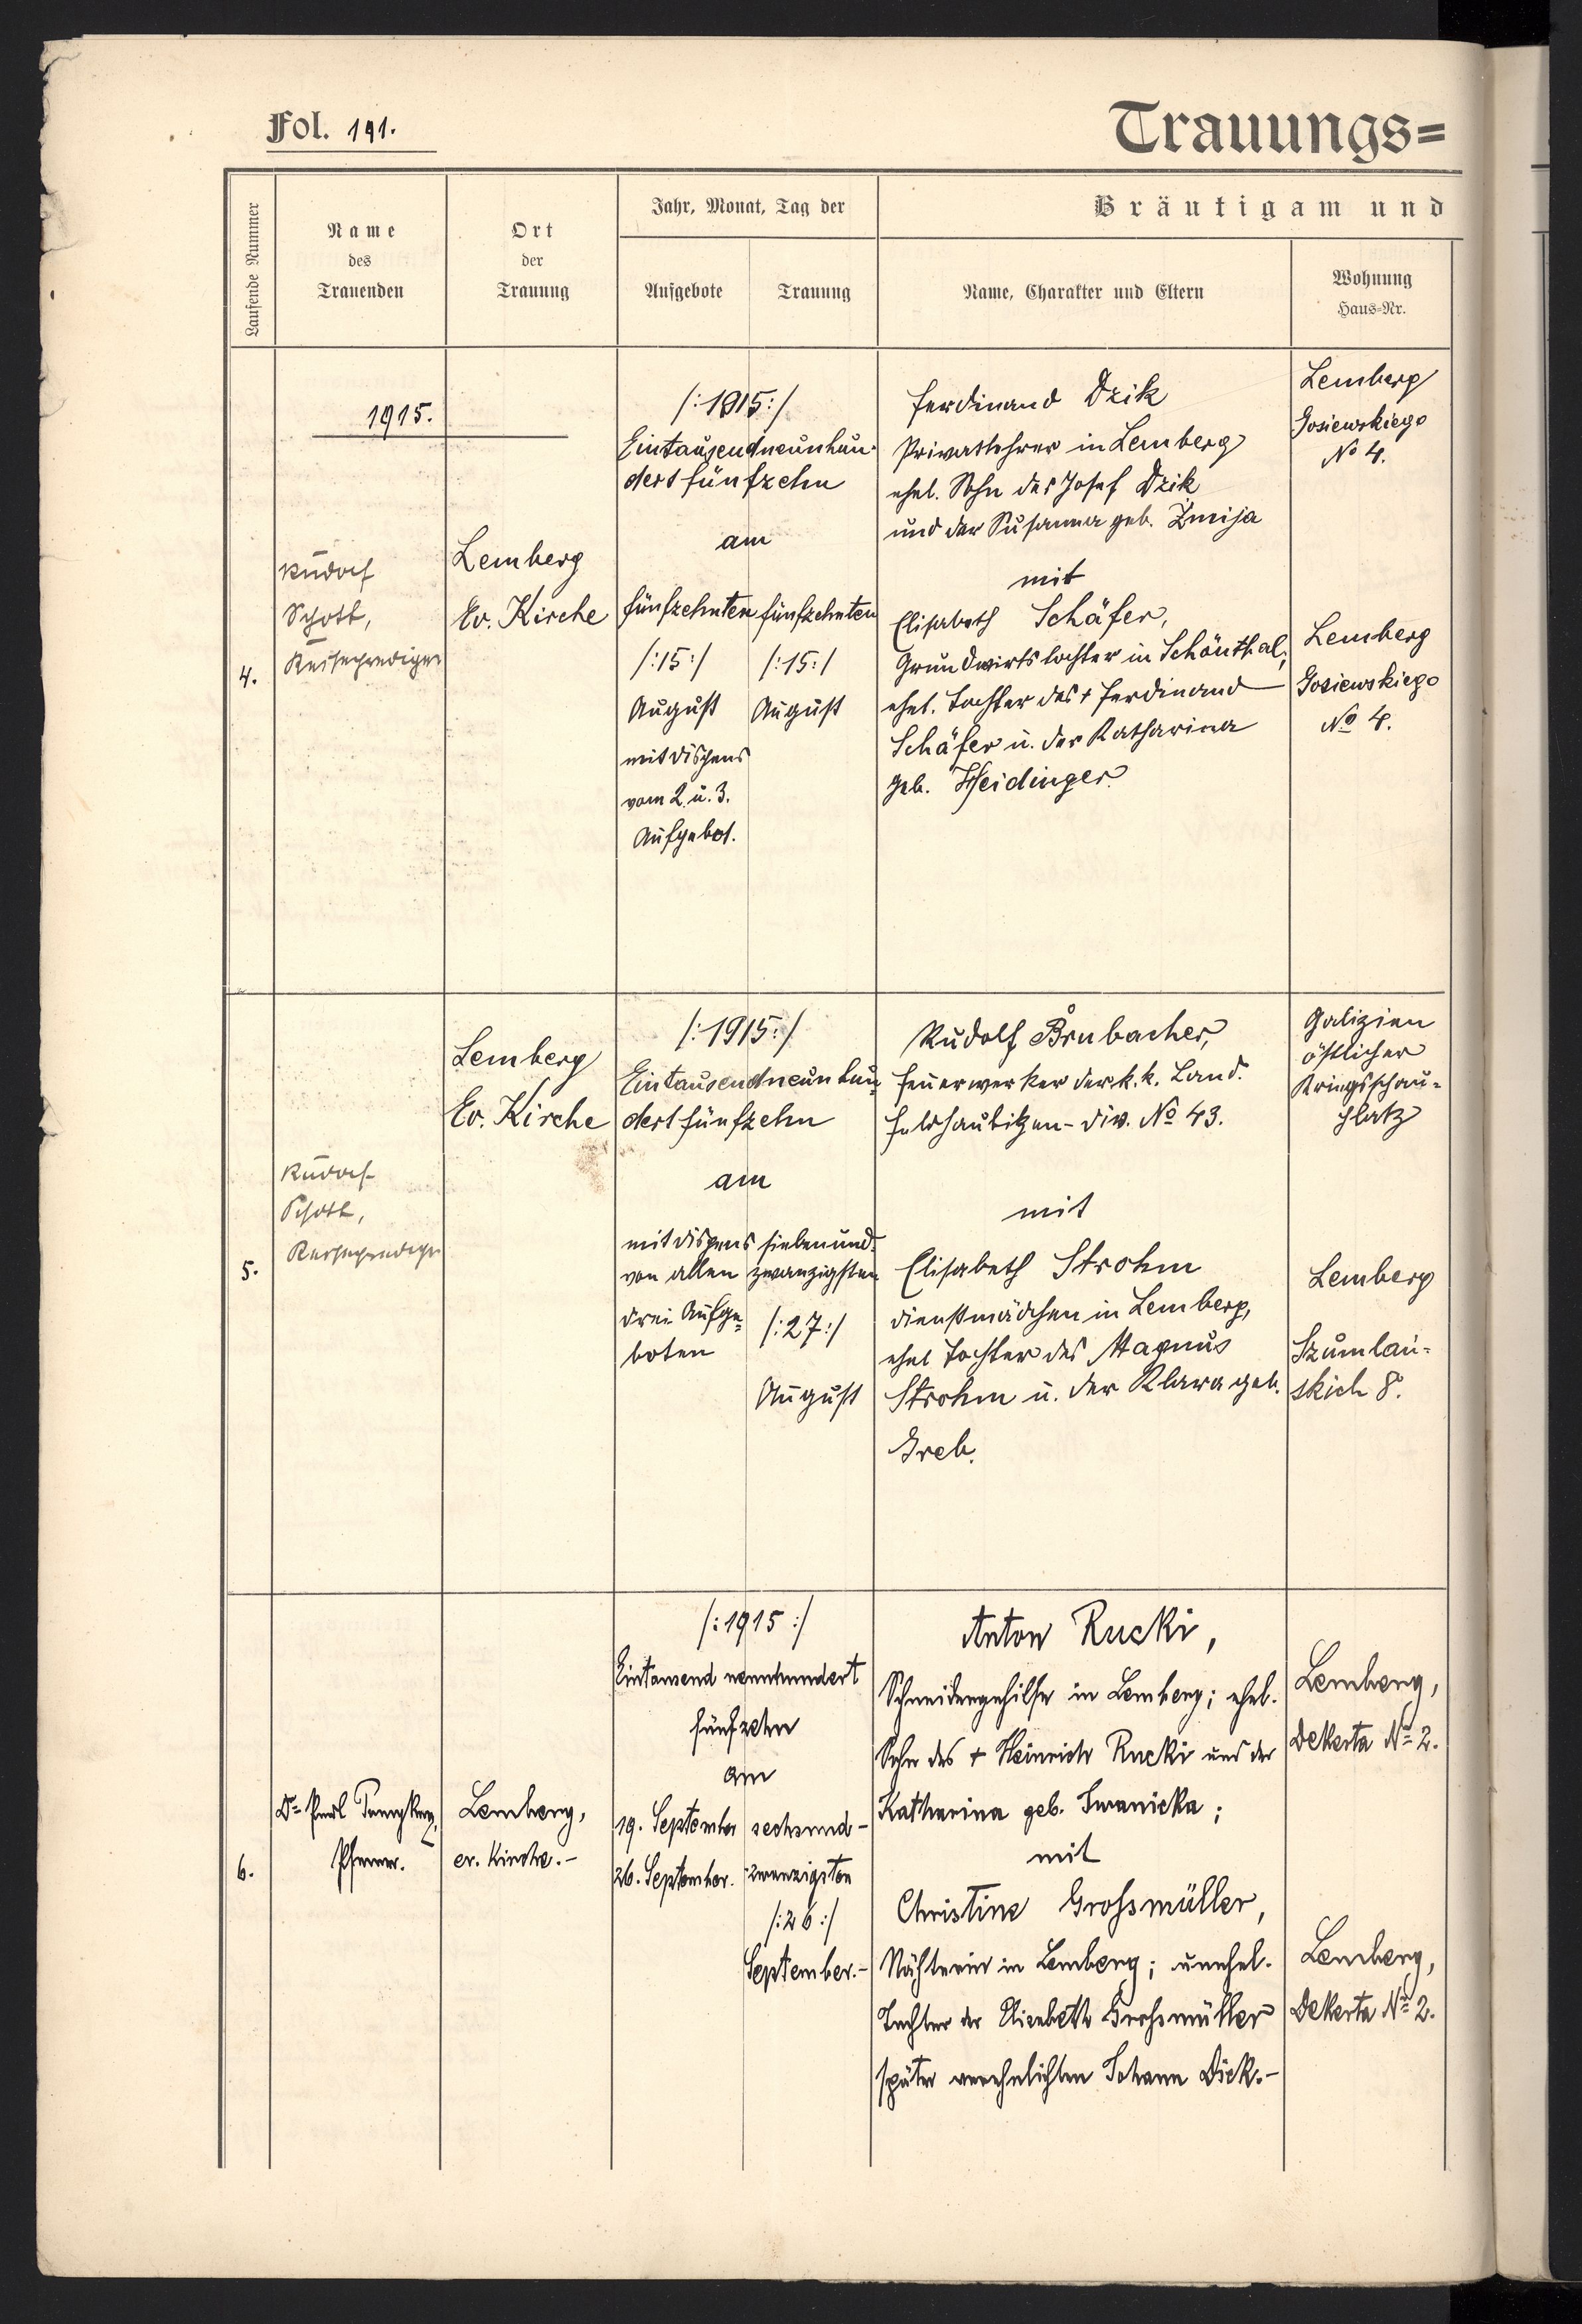 Fol. 191.
Trauungs=
Laufende Nummer
Name
des
Trauenden
Ort
der
Trauung
Jahr, Monat, Tag der
Aufgebote
Trauung
Bräutigam und
Name, Charakter und Eltern
Wohnung
Haus=Nr.
1915.
4.
Rudolf
Schott,
Reiseprediger
Lemberg
Ev. Kirche
/:1915:/
Eintausendneunhun-
dertfünfzehn
am
fünfzehnten
/:15:/
August
mit Dispens
vom 2. u. 3.
Aufgebot.
fünfzehnten
/:15:/
August
Ferdinand Dzik
Privatlehrer in Lemberg
ehel. Sohn des Josef Dzik
und der Susanna geb. Żmija
mit
Elisabeth Schäfer,
Grundwirtstochter in Schönthal,
ehel. Tochter des + Ferdinand
Schäfer u. der Katharina
geb. Heidinger.
Lemberg
Gosiewskiego
No 4.
Lemberg
Gosiewskiego
No 4.
5.
Rudolf
Schott,
Reiseprediger
Lemberg
Ev. Kirche
/:1915:/
Eintausendneunhun-
dertfünfzehn
am
mit Dispens
von allen
drei Aufge-
boten
siebenund-
zwanzigsten
/:27:/
August
Rudolf Brubacher,
Feuerwerker der k.k. Land.
Feldhaubitzen-Div. No 43.
mit
Elisabeth Strohm
Dienstmädchen in Lemberg,
ehel Tochter des Magnus
Strohm u. der Klara geb.
Greb.
Galizien
östlicher
Kriegsschau-
platz
Lemberg
Szumlań-
skich 8.
6.
Dr
Pfarrer.
Lemberg,
ev. Kirche.-
/:1915:/
Eintausend neunhundert
fünfzehn
am
19. September
26. September.
sechsund-
zwanzigsten
/:26:/
September.-
Anton Rucki,
Schneidergehilfe in Lemberg; ehel.
Sohn des + Heinrich Rucki und der
Katharina geb. Iwanicka;
mit
Christine Grossmüller,
Nähterin in Lemberg; unehel.
Tochter der Elisabeth Grossmüller
später verehelichten Johann Dick.-
Lemberg,
Dekerta No 2.
Lemberg,
Dekerta No 2.